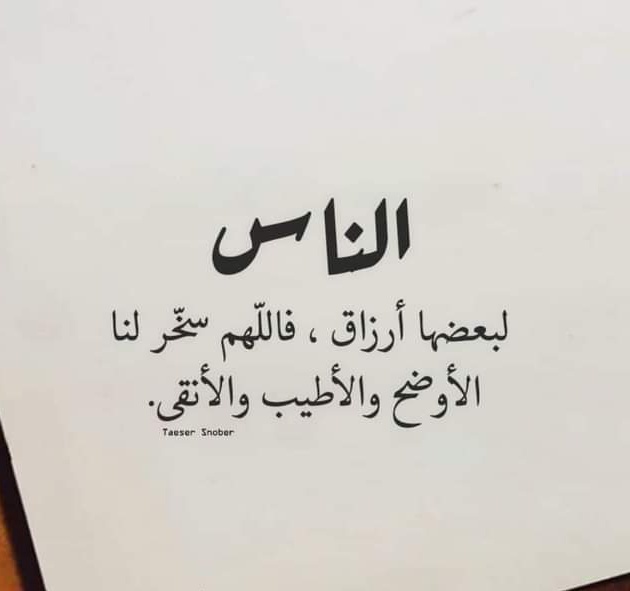 الناس
لبعضها أرزاق ، فاللّهم سخّر لنا
الأوضح والأطيب والأنقى.
Taeser Snober